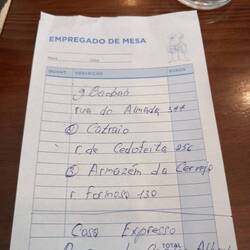 EMPREGADO DE MESA
QUANT. DESCRIÇÃO EUROS
rua do Almada
Catraio
r de Cedofeita 256
Armazém da Cerveja
r Formosa 130
Casa Expresso
TOTAL